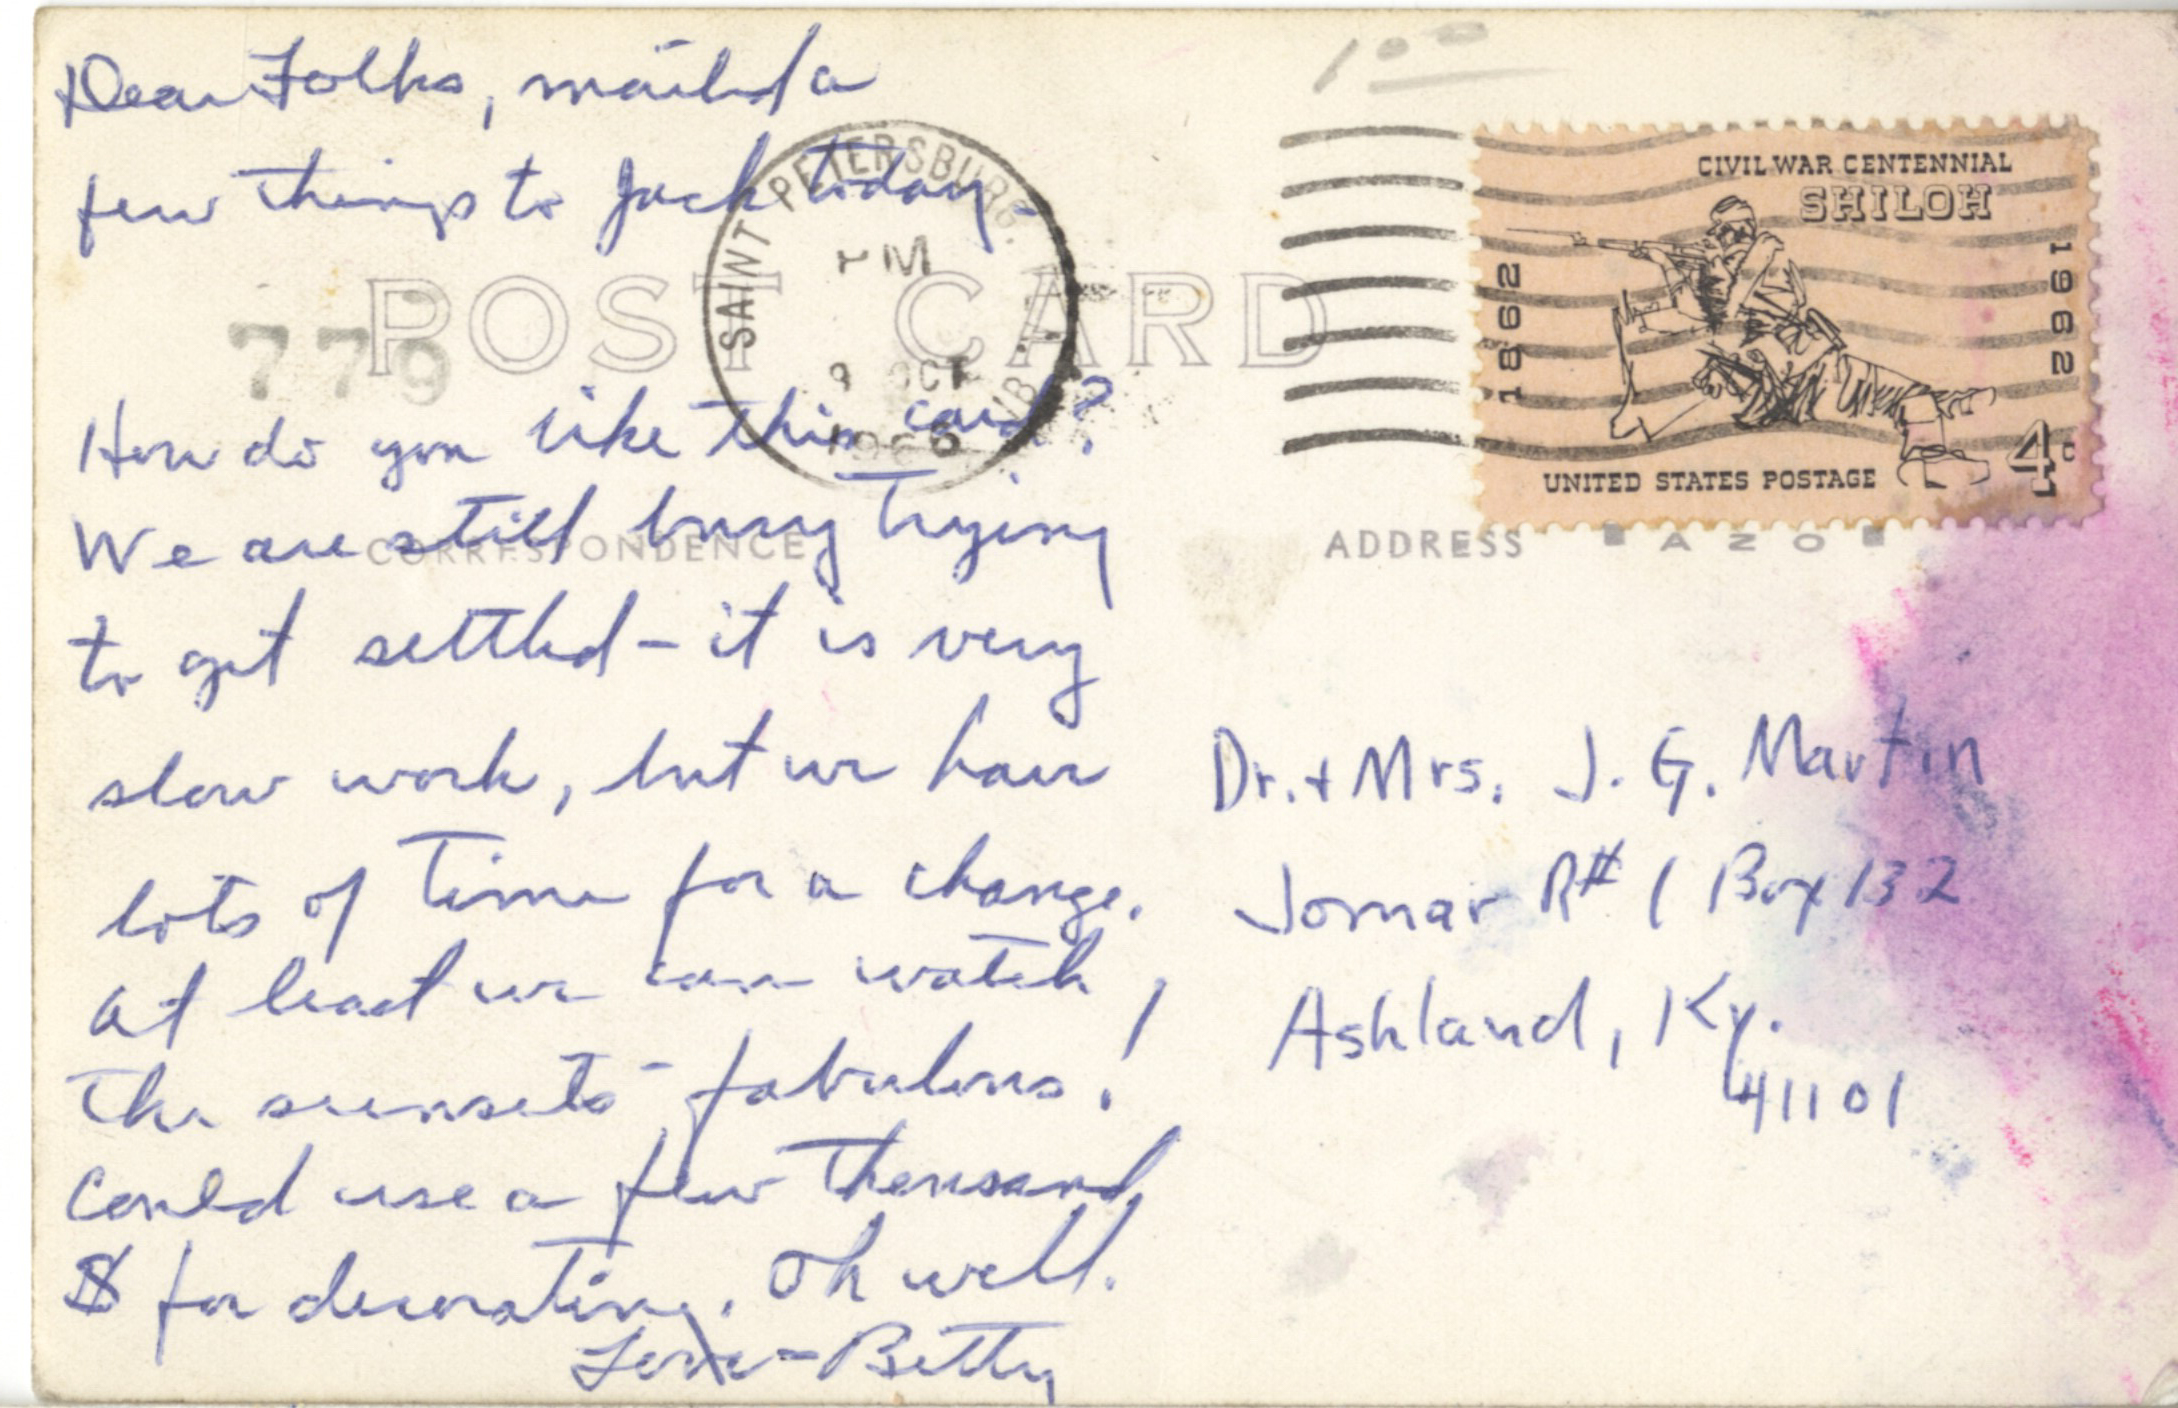 Dear Folks, mailed a
few things to Jack today -
How do you like this card?
We are still busy trying
to get settled - it is very
slow work, but we have
lots of time for a change.
At least we can watch
the sunsets - fabulous!
Could use a few thousand
$ for decorating. Oh well.
Love - Betty
1 00
SAINT PETERSBURG
PM
9 OCT
1966
779
POST CARD
CORRESPONDENCE
ADDRESS
AZO
CIVIL WAR CENTENNIAL
SHILOH
1862
1962
UNITED STATES POSTAGE
4c
Dr. + Mrs. J. G. Martin
Jomar R# 1 Box 132
Ashland, Ky.
41101